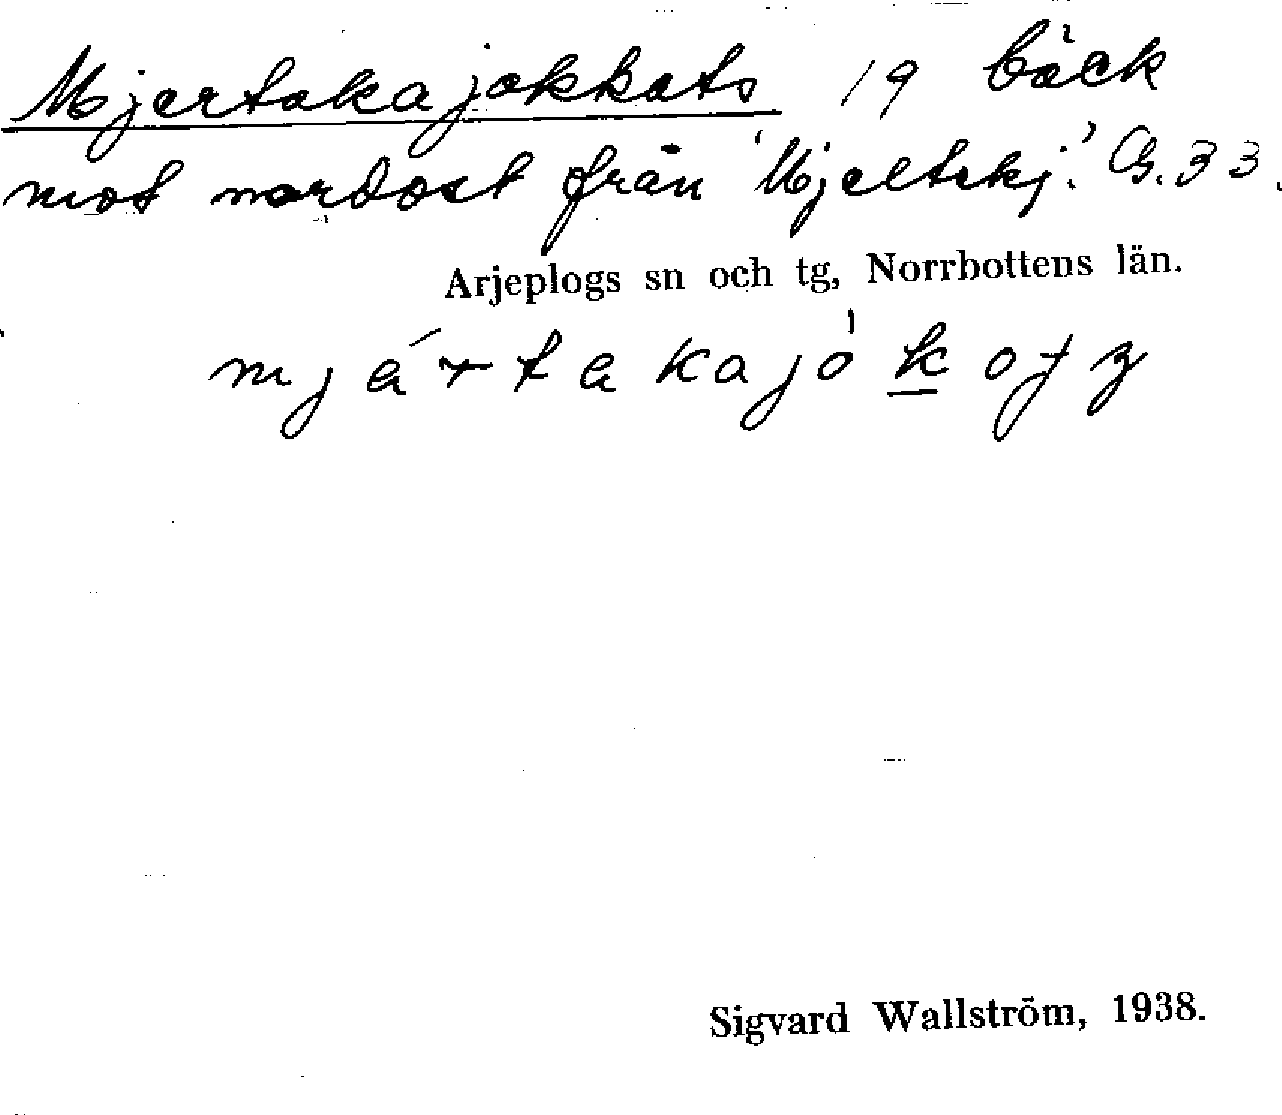 Mjertakajokkats 19 bäck
mot nordost från 'Mjeltskj.' G. 33.
Arjeplogs sn och tg, Norrbottens län.
mjártakajókotʒ
Sigvard Wallström, 1938.